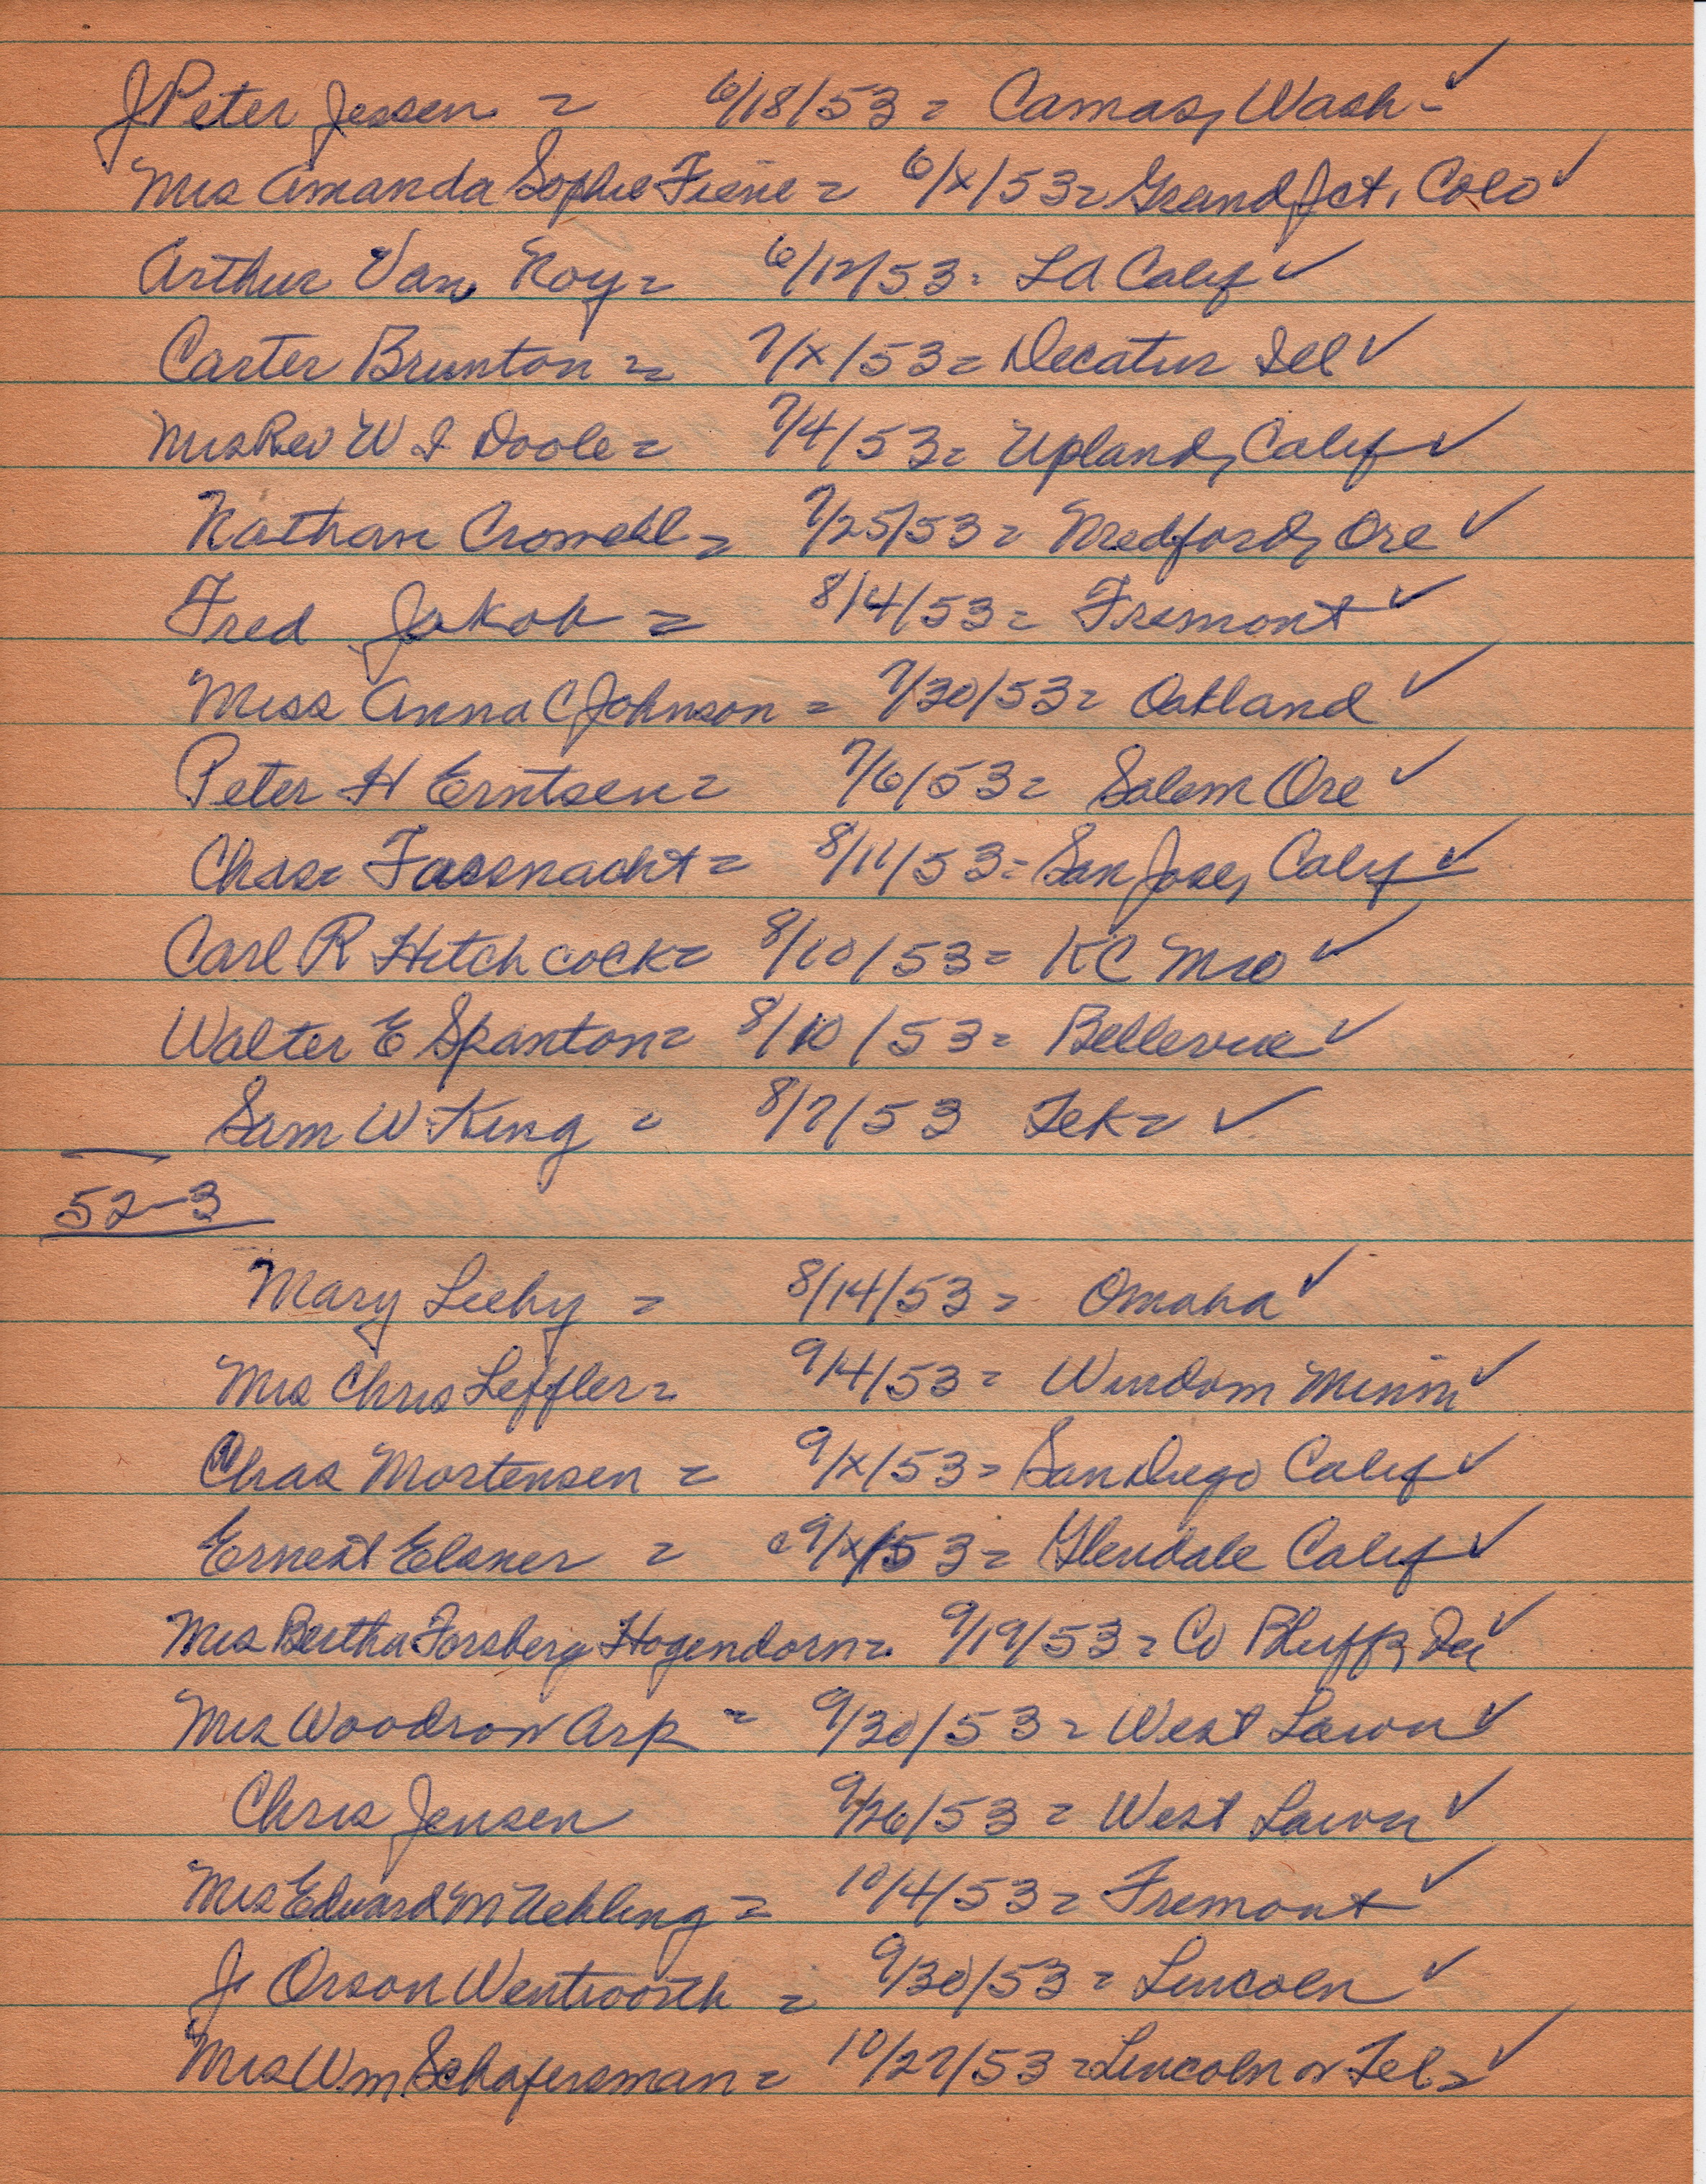 J Peter Jessen = 6/18/53 = Camas, Wash - ✓
Mrs Amanda Sophie Fiene = 6/x/53 = Grand Jct, Colo ✓
Arthur Van Roy = 6/12/53 = LA Calif ✓
Carter Brunton = 7/x/53 = Decatur Ill ✓
Mrs Rev W I Doole = 7/4/53 = Upland, Calif ✓
Nathan Crowell = 7/25/53 = Medford, Ore ✓
Fred Jakob = 8/4/53 = Fremont ✓
Miss Anna C Johnson = 7/30/53 = Oakland ✓
Peter H Erntsen = 7/6/53 = Salem Ore ✓
Chas = Fassnacht = 8/11/53 = San Jose, Calif ✓
Carl R Hitchcock = 8/10/53 = KC Mo ✓
Walter E Spanton = 8/10/53 = Bellevue ✓
Sam W King = 8/7/53 Tek = ✓
52-3
Mary Leehy = 8/14/53 = Omaha ✓
Mrs Chris Leffler = 9/4/53 = Windom Minn ✓
Chas Mortensen = 9/x/53 = San Diego Calif ✓
Ernest Elsner = 9/x/53 = Glendale Calif ✓
Mrs Bertha Forsberg Hogendorn = 9/19/53 = Co Bluffs, Ia ✓
Mrs Woodrow Arp = 9/30/53 = West Lawn ✓
Chris Jensen 9/26/53 = West Lawn ✓
Mrs Edward M Uehling = 10/4/53 = Fremont ✓
J Orson Wentworth = 9/30/53 = Lincoln ✓
Mrs Wm Schafersman = 10/27/53 = Lincoln or Tel = ✓